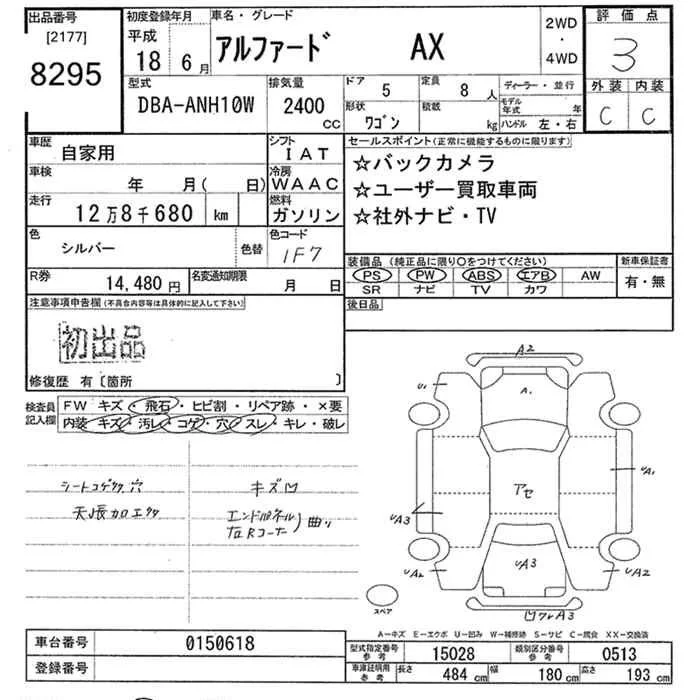 出品番号
[2177]
8295
初度登録年月
平成
18 6月
車名・グレード
アルファード AX
2WD
・
4WD
評価点
3
外装 内装
C C
型式
DBA-ANH10W
排気量
2400
cc
ドア
5
定員
8 人
形状
ワゴン
積載
kg
ディーラー・並行
モデル年式 年
ハンドル 左・右
車歴
自家用
シフト
IAT
車検
年 月( 日)
冷房
WAAC
走行
12万8千680 km
燃料
ガソリン
色
シルバー
色替
色コード
1F7
R券
14,480円
名変通知期限
月 日
セールスポイント(正常に機能するものに限ります)
☆バックカメラ
☆ユーザー買取車両
☆社外ナビ・TV
装備品(純正品に限り○をつけてください)
PS PW ABS エアB AW
SR ナビ TV カワ
新車保証書
有・無
後日品
注意事項申告欄(不具合内容等は具体的に記入して下さい)
初出品
修復歴 有〔箇所 〕
検査員記入欄
FW キズ・飛石・ヒビ割・リペア跡・×要
内装・キズ・汚レ・コゲ・穴・スレ・キレ・破レ
シートコゲ 穴
キズ凹
エンドパネル
右Rコーナー
曲り
A2
U1
A1
UA1
アセ
UA3
UA3
UA2
UA2
凹ワレA3
スペア
A−キズ E−エクボ U−凹み W−補修跡 S−サビ C−腐食 XX−交換済
車台番号
0150618
登録番号
型式指定番号
参考
15028
類別区分番号
参考
0513
車庫証明用
参考
長さ 484 cm 幅 180 cm 高さ 193 cm